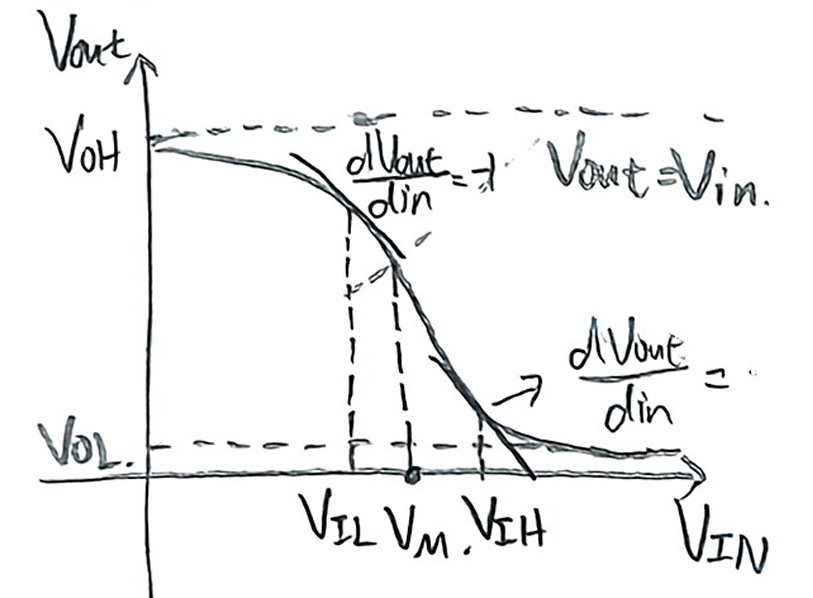 Vout
VOH
dVout
din
=-1
Vout=Vin.
dVout
din
=
VOL.
VIL VM. VIH
VIN